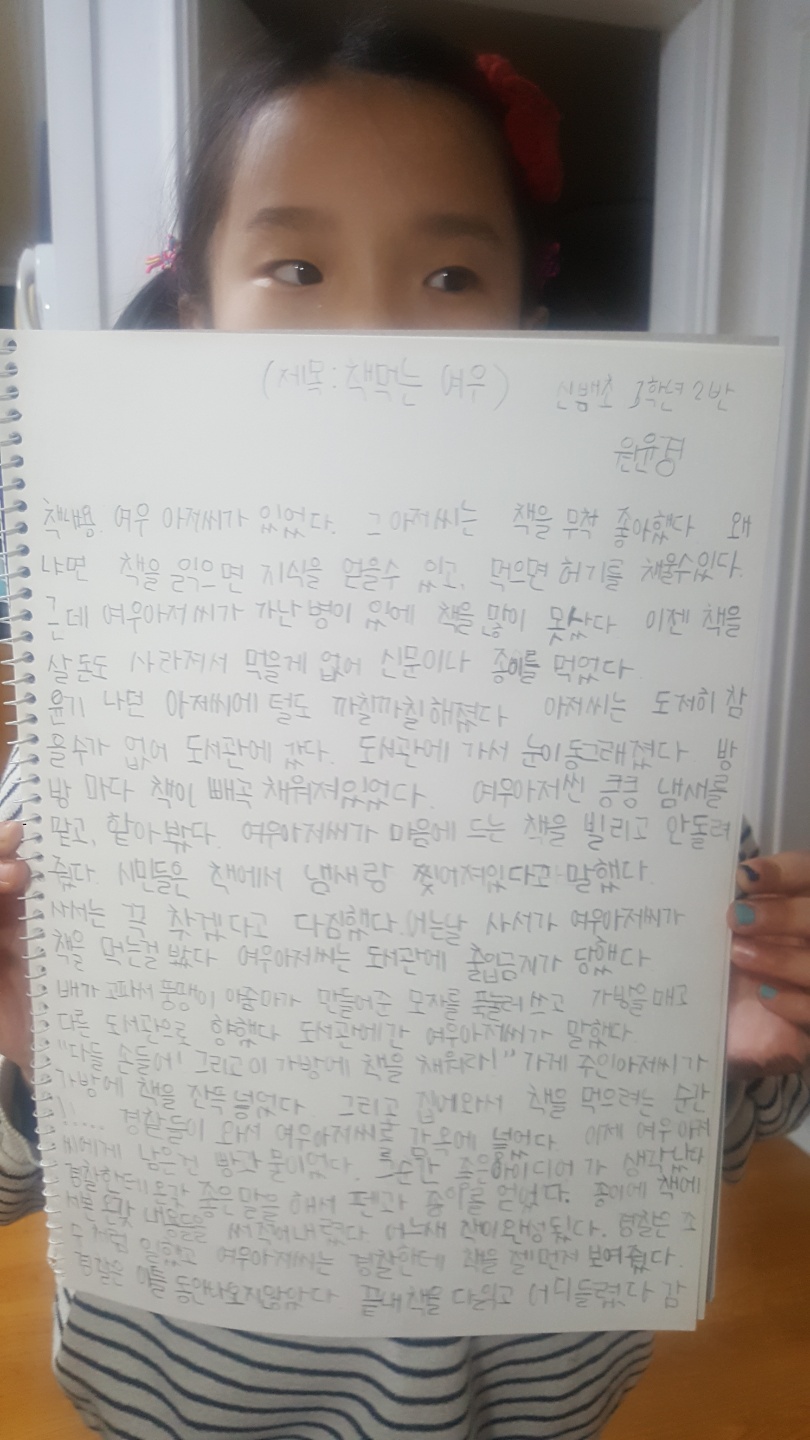 (제목: 책먹는 여우) 신배초 3학년 2반
원윤경
책내용. 여우 아저씨가 있었다. 그아저씨는 책을 무척 좋아했다 왜
냐면 책을 읽으면 지식을 얻을수 있고, 먹으면 허기를 채울수있다.
근데 여우아저씨가 가난병이 있에 책을 많이 못샀다 이젠 책을
살돈도 사라져서 먹을게 없어 신문이나 종이를 먹었다.
윤기 나던 아저씨에 털도 까칠까칠해졌다 아저씨는 도저히 참
을수가 없어 도서관에 갔다. 도서관에 가서 눈이동그래졌다. 방
방 마다 책이 빼곡 채워져있었다. 여우아저씬 킁킁 냄새를
맡고, 핥아 봤다. 여우아저씨가 마음에 드는 책을 빌리고 안돌려
줬다. 시민들은 책에서 냄새랑 찢어져있다고 말했다.
사서는 꼭 찾겠다고 다짐했다. 어느날 사서가 여우아저씨가
책을 먹는걸 봤다 여우아저씨는 도서관에 출입금지가 당했다
배가 고파서 뚱땡이 아줌마가 만들어준 모자를 푹눌러쓰고 가방을 매고
다른 도서관으로 향했다 도서관에간 여우아저씨가 말했다.
"다들 손들어! 그리고 이 가방에 책을 채워라!" 가게 주인아저씨가
가방에 책을 잔뜩 넣었다. 그리고 집에와서 책을 먹으려는 순간
!!.... 경찰들이 와서 여우아저씨를 감옥에 넣었다 이제 여우아저
씨에게 남은건 빵과 물이었다. 그순간 좋은아이디어가 생각났다
경찰한테 온갖 좋은말을 해서 펜과 종이를 얻었다. 종이에 책에
서본 온갖 내용들을 써적어내렸다 어느새 책이완성됬다. 경찰은
처럼 일했고 여우아저씨는 경찰한테 책을 젤먼저 보여줬다.
경찰은 이틀 동안나오지않았다. 끝내책을 다읽고 감